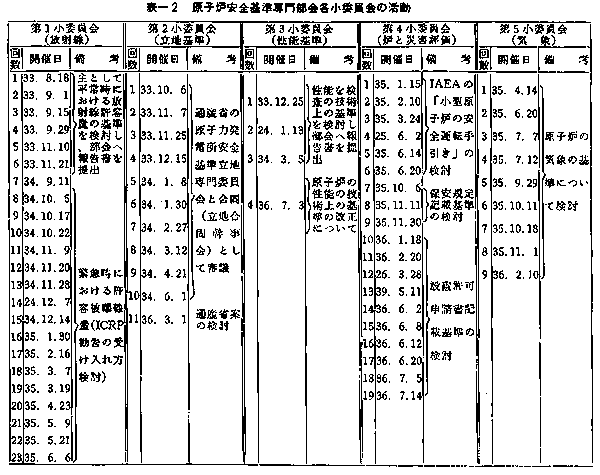 表－2 原子炉安全基準専門部会各小委員会の活動
第1小委員会
(放射線)
回数 開催日 備考
1 33. 8.18
2 33. 9. 1
3 33. 9.15
4 33. 9.29
5 33.11.10
6 33.11.21
7 34. 9.11
主として
平常時に
おける放
射線許容
量の基準
を検討し
、部会へ
報告書を
提出
8 34.10. 5
9 34.10.17
10 34.10.22
11 34.11. 9
12 34.11.20
13 34.11.28
14 24.12. 7
15 34.12.14
16 35. 1.30
17 35. 2.16
18 35. 3. 7
19 35. 3.19
20 35. 4.23
21 35. 5. 9
22 35. 5.21
23 35. 6. 6
緊急時に
おける許
容被曝線
量(ICRP
勧告の受
け入れ方
検討)
第2小委員会
(立地基準)
回数 開催日 備考
1 33.10. 6
2 33.11. 7
3 33.11.25
4 33.12.15
5 34. 1. 8
6 34. 1.30
7 34. 2.27
8 34. 3.12
9 34. 4.21
10 34. 6. 1
11 36. 3. 1
通産省の
原子力発
電所安全
基準立地
専門委員
会と合同
(立地合
同幹事
会)とし
て審議
通産省案
の検討
第3小委員会
(性能基準)
回数 開催日 備考
1 33.12.25
2 24. 1.13
3 34. 3. 5
性能を検
査の技術
上の基準
を検討し
部会へ報
告書を提
出
4 36. 7. 3
原子炉の
性能の技
術上の基
準の改正
について
第4小委員会
(炉と災害評価)
回数 開催日 備考
1 35. 1.15
2 35. 2.10
3 35. 3.24
4 25. 6. 2
5 35. 6.14
6 35. 6.20
IAEAの
「小型原
子炉の安
全運転手
引き」の
検討
7 35.10. 6
8 35.11.11
9 35.11.30
保安規定
記載基準
の検討
10 36. 1.18
11 36. 2.20
12 26. 3.28
13 39. 5.11
14 36. 6. 2
15 36. 6. 8
16 36. 6.12
17 36. 6.20
18 86. 7. 5
19 36. 7.14
設置許可
申請書記
載基準の
検討
第5小委員会
(気象)
回数 開催日 備考
1 35. 4.14
2 35. 6.20
3 35. 7. 7
4 35. 7.12
5 35. 9.29
6 35.10.11
7 35.10.18
8 35.11. 1
9 36. 2.10
原子炉の
気象の基
準につい
て検討